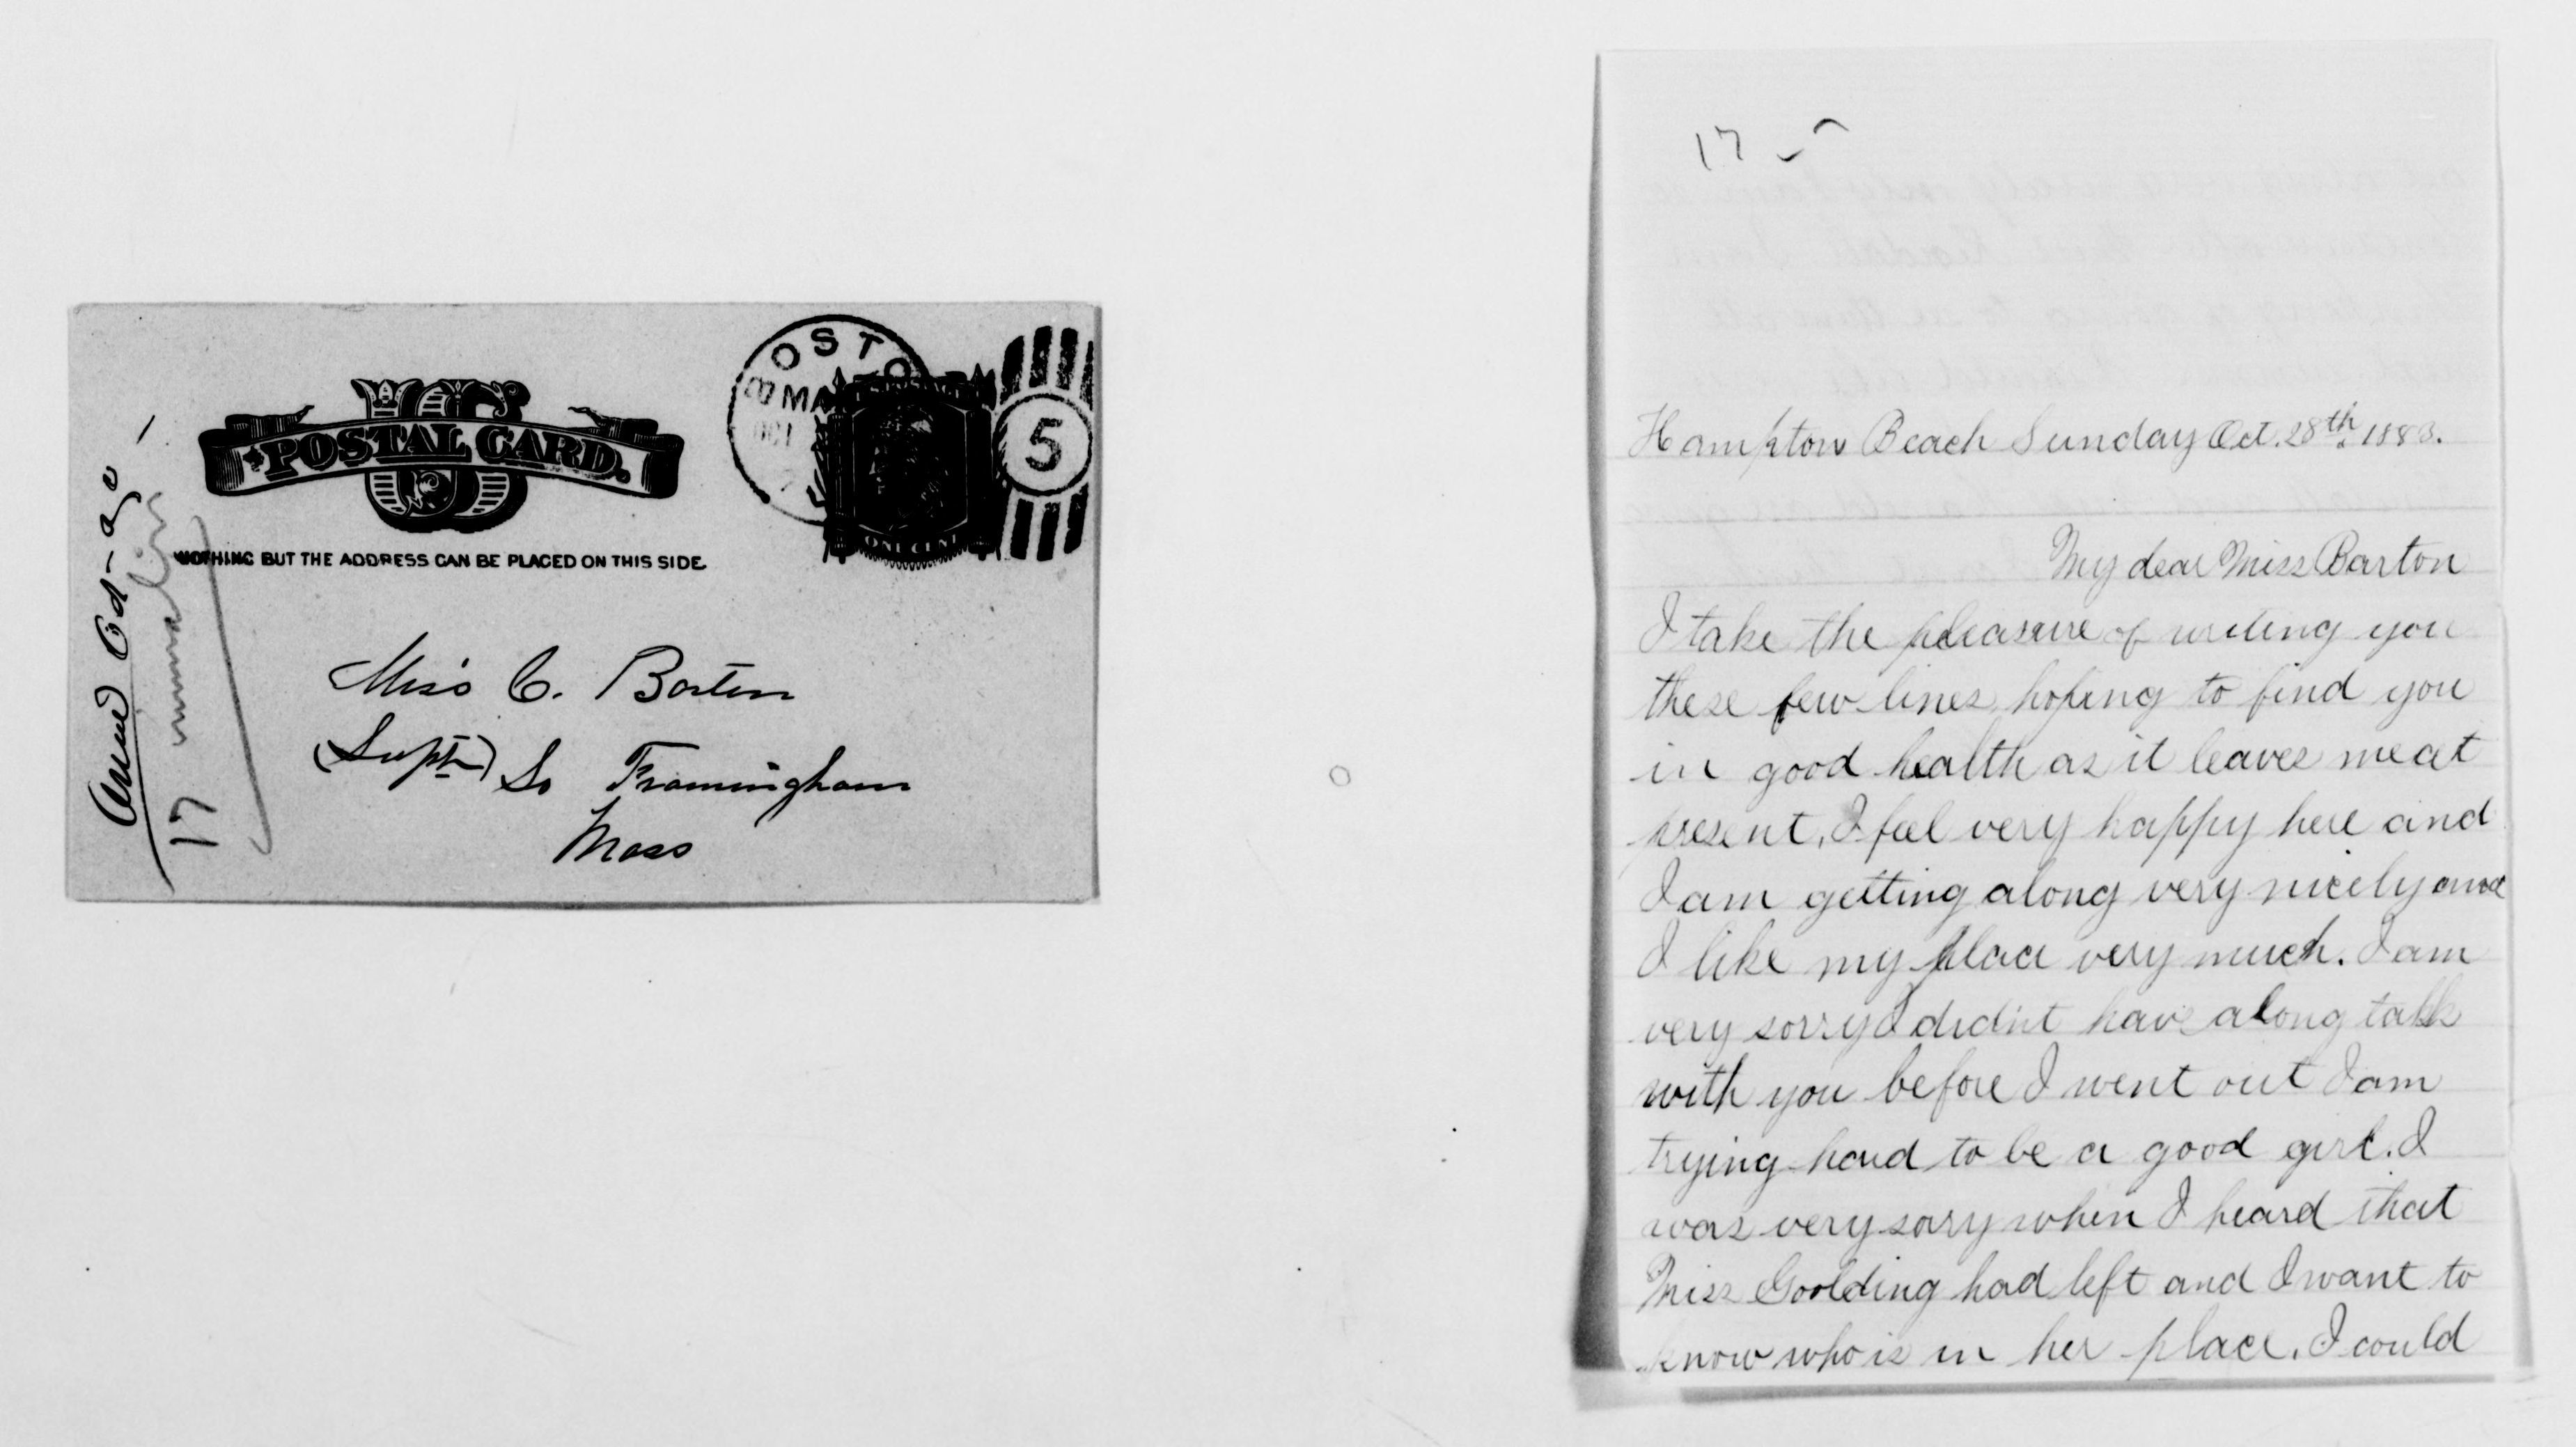 POSTAL CARD.
NOTHING BUT THE ADDRESS CAN BE PLACED ON THIS SIDE.
BOSTO
MA
OCT
5
ONE CENT
17
Miss C. Barton
(Supt) So Framingham
Mass
17
Hampton Beach Sunday Oct. 28th 1883.
My dear Miss Barton
I take the pleasure of writing you
these few lines hoping to find you
in good health as it leaves me at
present, I feel very happy here and
I am getting along very nicely and
I like my place very much. I am
very sorry I didnt have along talk
with you before I went out I am
trying hard to be a good girl. I
was very sory when I heard that
Miss Goolding had left and I want to
know who is in her place. I could